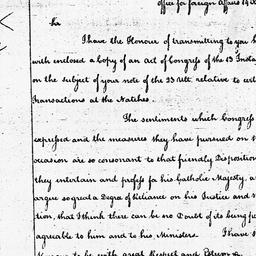 office for foreign Affairs 14 Oc
Sir
I have the Honour of transmitting to you h
with enclosed a Copy of an Act of Congress of the 13 Insta
on the subject of your note of the 23 Ult. relative to cert
Transactions at the Natches.
The sentiments which Congress
expressed and the measures they have pursued on t
occasion are so consonant to that friendly Disposition
they entertain and profess for his Catholic Majesty, a
argue so great a Degree of Reliance on his Justice and
tion, that I think there can be no Doubt of its being
agreable to him and to his Ministers. I have
Honour to be with great Respect and Esteem